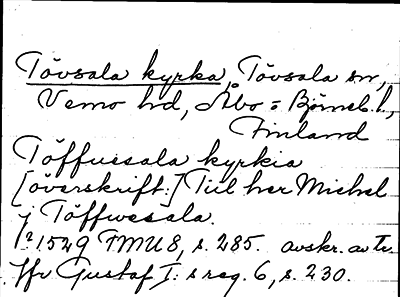 Tövsala kyrka, Tövsala sn,
Vemo hd, Åbo = Björneb. l.,
Finland
Töffuesala kyrkia
[överskrift:] Till her Michel
j Töffwesala.
1529 FMU 8, s. 285. avskr. av tr.
Gustaf I:s reg. 6, s. 230.